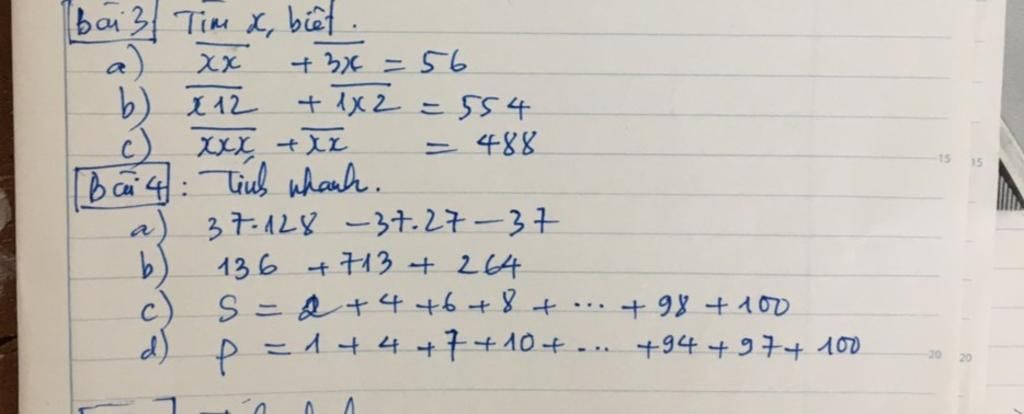 Bài 3 Tìm x, biết.
a) x̅x̅ + 3̅x̅ = 56
b) x̅1̅2̅ + 1̅x̅2̅ = 554
c) x̅x̅x̅ + x̅x̅ = 488
Bài 4 : Tính nhanh.
a) 37.128 - 37.27 - 37
b) 136 + 713 + 264
c) S = 2 + 4 + 6 + 8 + ... + 98 + 100
d) P = 1 + 4 + 7 + 10 + ... + 94 + 97 + 100
15 15
20 20